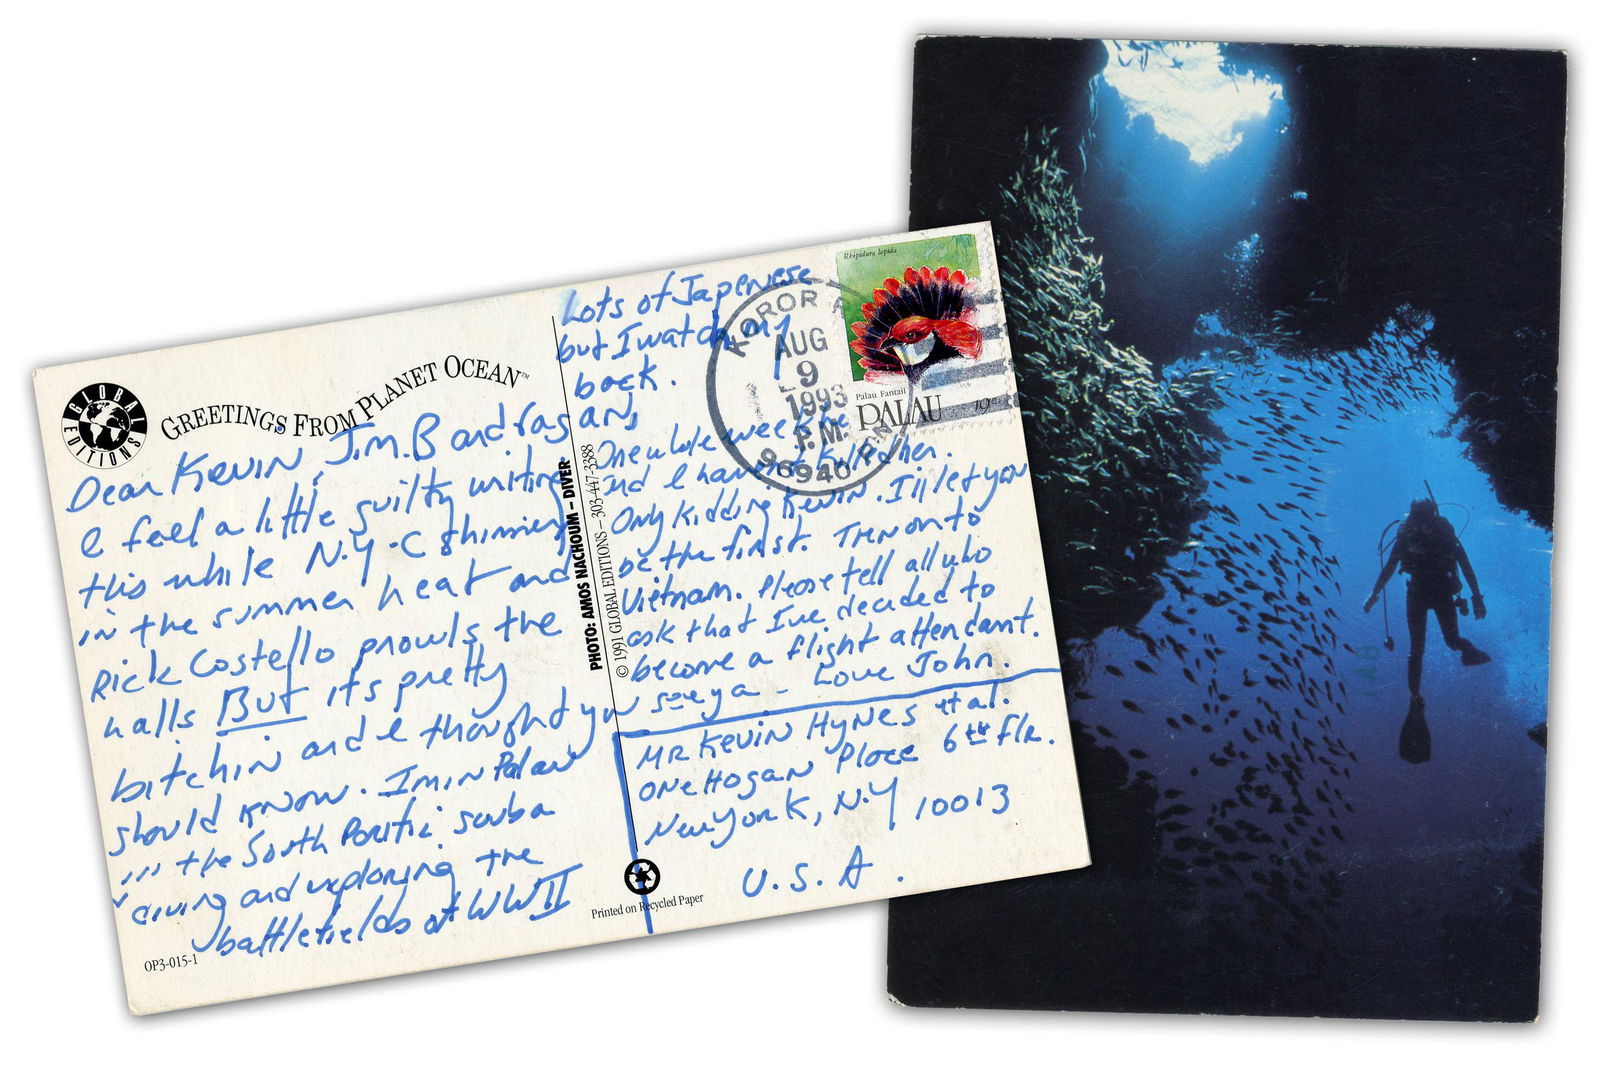 GLOBAL EDITIONS
GREETINGS FROM PLANET OCEAN™
Dear Kevin, Jim. B and
I feel a little guilty writing
this while N.Y.C shimmers
in the summer heat and
Rick Costello prowls the
halls But its pretty
bitchin and I thought you
should know. Im in Palau
in the South Pacific scuba
diving and exploring the
battlefields of WWII
OP3-015-1
PHOTO: AMOS NACHOUM – DIVER
© 1991 GLOBAL EDITIONS – 303-447-3388
Printed on Recycled Paper
Lots of Japenese
but I watch my
back.
One whole week
and I haven't killed her.
Only kidding Kevin. I'll let you
be the first. Then on to
Vietnam. Please tell all who
ask that I've decided to
become a flight attendant.
see ya - Love John.
Mr Kevin Hynes et al.
One Hogan Place 6th flr.
New York, N.Y 10013
U.S.A.
KOROR
AUG
9
1993
P.M.
96940
Rhipidura lepida
Palau Fantail
PALAU 19¢